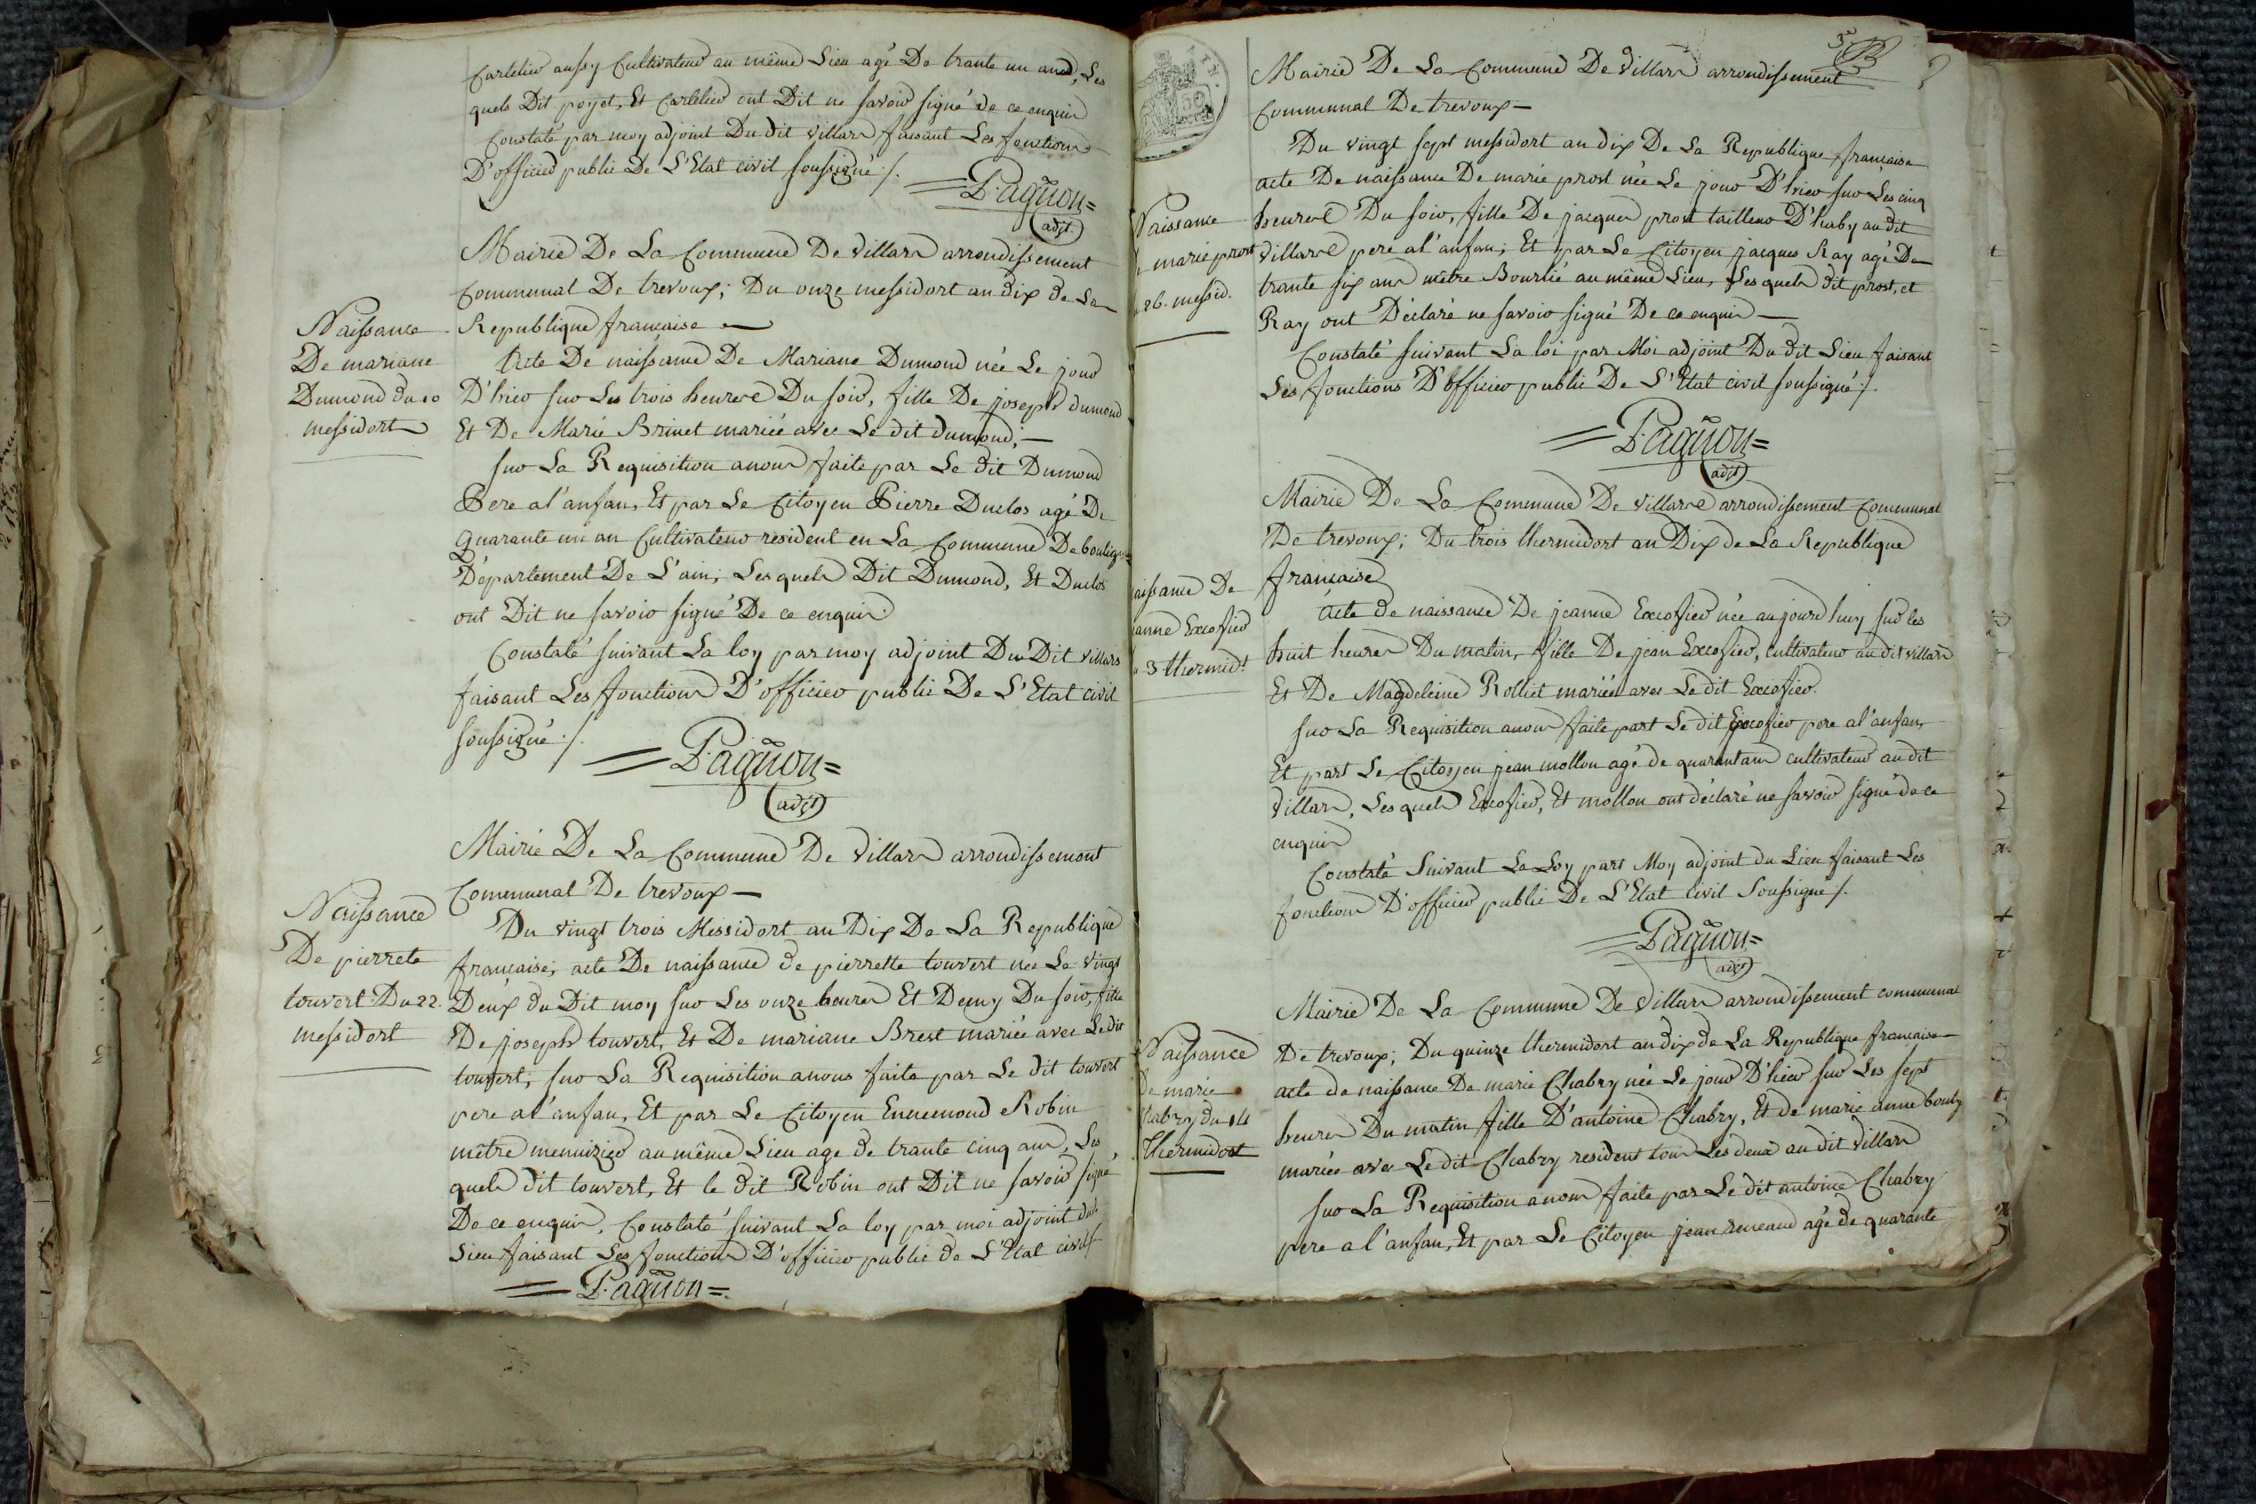 Cartelier aussy Cultivateur au même Lieu agé De trante un ans, Les
quels Dit poyet, Et Cartelier ont Dit ne savoir signé de ce enquir
Constaté par moy adjoint Du dit villars faisant Les fonctions
D'officier public De L'Etat civil soussigné ./.
=Pagnon=
adjt
Mairie De La Commune De villars arrondissement
Communal De trevoux; Du onze messidort an dix de La
Republique française —
Naissance
De mariane
Dumond du 10
messidort
Acte De naissance De Mariane Dumond née Le jour
D'hier sur Les trois heures Du soir, fille De joseph dumond
Et De Marie Brinet mariée avec Le dit dumond; —
sur La Requisition anous faite par Le dit Dumond
Pere al'anfan, Et par Le Citoyen Pierre Duclos agé De
Quarante un an Cultivateur résident en La Commune De bouligneux
Département De L'ain; Les quels Dit Dumond, Et Duclos
ont Dit ne savoir signé De ce enquir
Constaté suivant La loy par moy adjoint Du Dit villars
faisant Les fonctions D'officier public De L'Etat civil
soussigné ./.
=Pagnon=
adjt
Mairie De La Commune De villars arrondissement
Communal De trevoux —
Naissance
De pierrete
touvert Du 22.
messidort
Du vingt trois Messidort an Dix De La Republique
française; acte De naissance de pierrette touvert née Le vingt
Deux du Dit moy sur Les onze heures Et Demy Du soir, fille
De joseph touvert, Et De mariane Brest mariée avec Le dit
touvert; sur La Requisition anous faite par Le dit touvert
pere al'anfan, Et par Le Citoyen Ennemond Robin
mêtre menuizier au même Lieu age de trante cinq ans, Les
quels dit touvert, Et le dit Robin ont Dit ne savoir signé
De ce enquir, Constaté suivant La loy par moi adjoint dudt
Lieu faisant Les fonctions D'officier public de L'Etat civil
=Pagnon=
5
Mairie De La Commune De villars arrondissement
Communal De trevoux —
Du vingt sept messidort an dix De La Republique française
Naissance
marie prost
26. messid.
acte De naissance De marie prost née Le jour D'hier sur Les cinq
heures Du soir, fille De jacques prost tailleur D'haby au dit
villars pere al'anfan; Et par Le Citoyen jacques Ray agé De
trante six ans mêtre Bourlié au même Lieu, Les quels dit prost, et
Ray ont Déclaré ne savoir signé De ce enquir —
Constaté suivant La loi par Moi adjoint Du dit Lieu faisant
Les fonctions D'officier public De L'Etat civil soussigné ./.
=Pagnon=
adjt
Mairie De La Commune De villars arrondissement Communal
De trevoux; Du trois thermidort an Dix de La Republique
française
aissance De
anne Excofier
3 thermidt
Acte de naissance De jeanne Excofier née aujourd huy sur les
huit heures Du matin, fille De jean Excofier, cultivateur au dit villars
Et De Magdeleine Rolliet mariée avec Le dit Excofier.
sur La Requisition anous faite part Le dit Excofier pere al'anfan,
Et part Le Citoyen jean mollon agé de quarantans cultivateur au dit
villars, Les quels Excofier, Et mollon ont déclaré ne savoir signé de ce
enquir
Constaté Suivant La Loy part Moy adjoint du Lieu faisant Les
fonctions D'officier public De L'Etat Civil Soussigné ./.
=Pagnon=
adjt
Mairie De La Commune De villars arrondissement communal
De trevoux; Du quinze thermidort an dix de La Republique française
Naissance
De marie
habry du 14
thermidort
acte de naissance De marie Chabry née Le jour D'hier sur Les sept
heures Du matin fille D'antoine Chabry, Et de marie anne bouly
mariée avec Le dit Chabry resident tous Les deux au dit villars
sur La Requisition anous faite par Le dit antoine Chabry
pere a l'anfan, Et par Le Citoyen jean reneaud agé de quarante